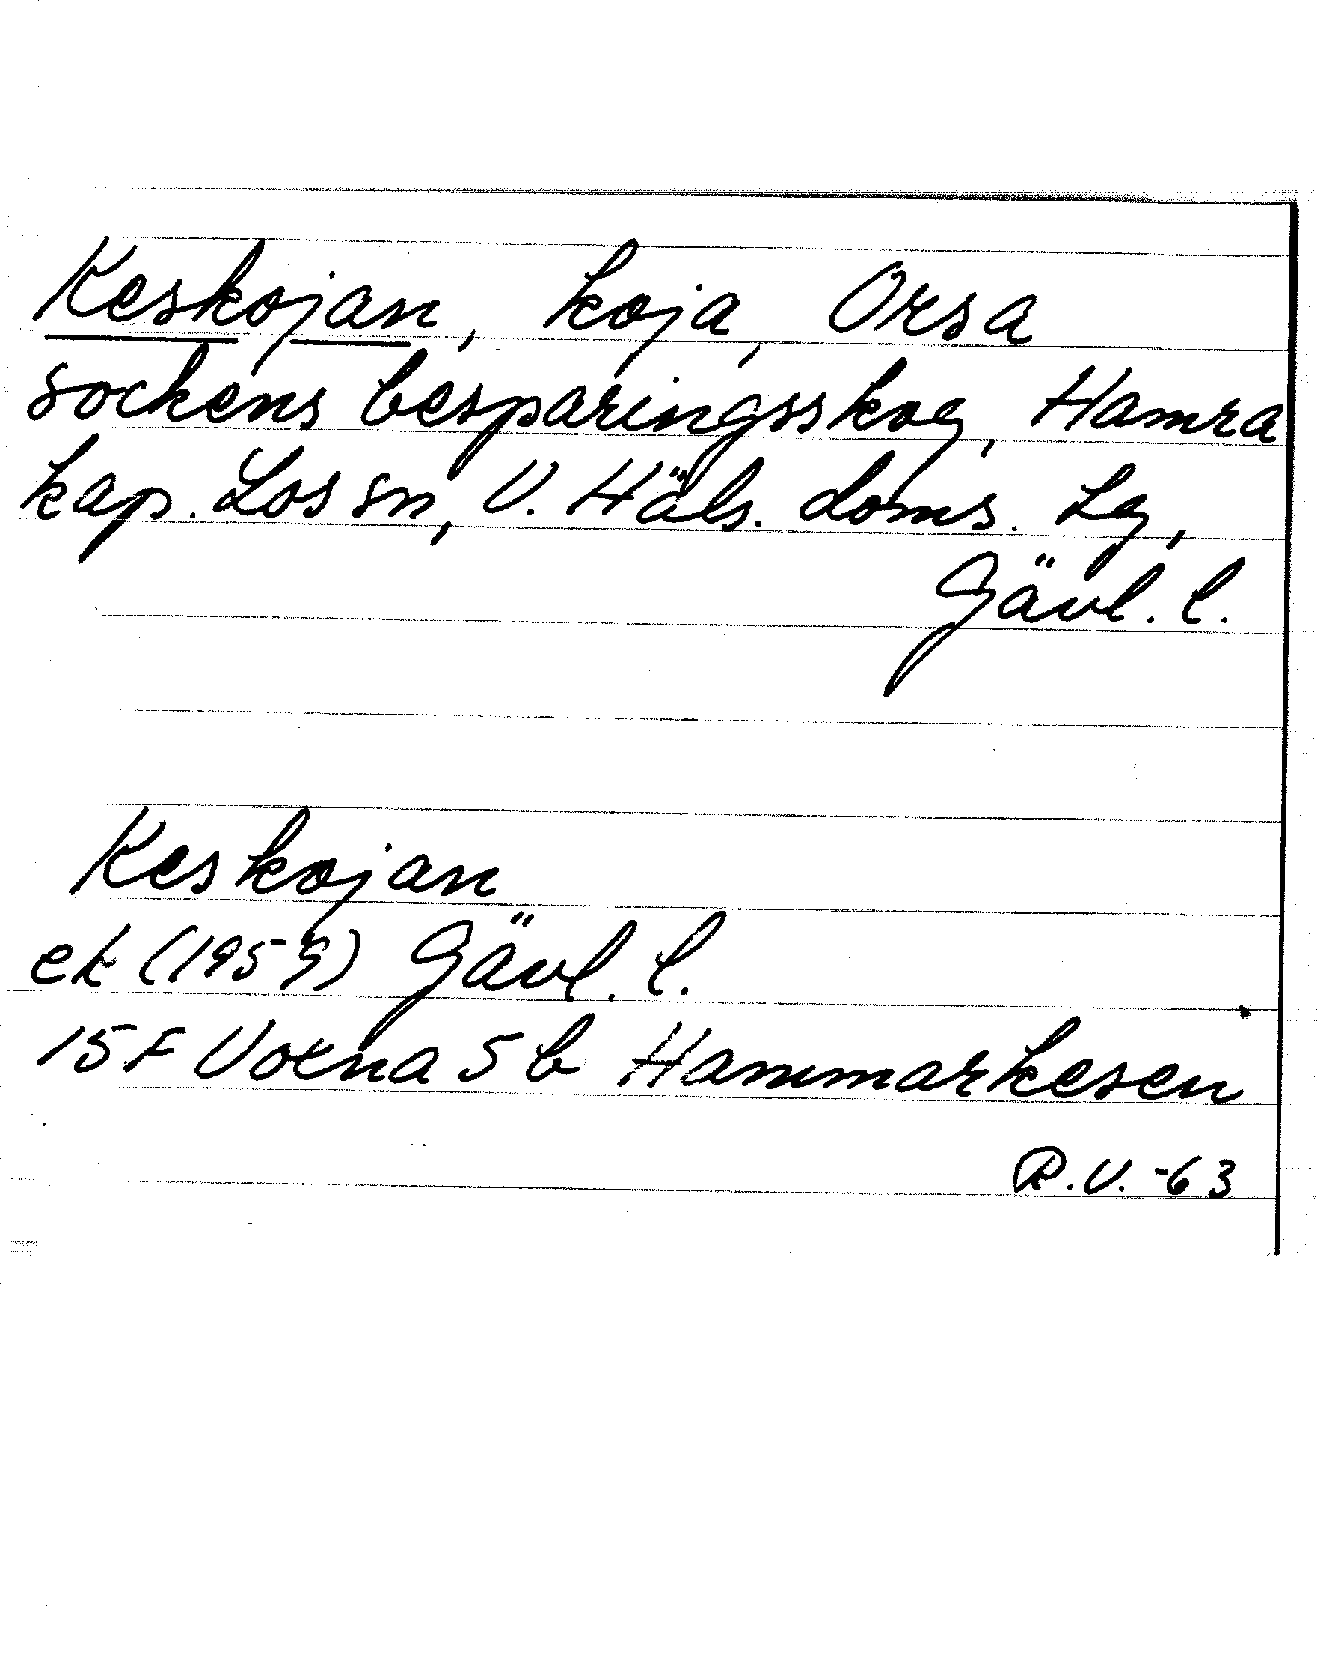 Keskojan, koja, Orsa
sockens besparingsskog, Hamra
kap. Los sn, V. Häls. doms. Lg,
Gävl. l.
Keskojan
ek (1959) Gävl. l.
15F Voxna 5b Hammarkesen
R.V. -63